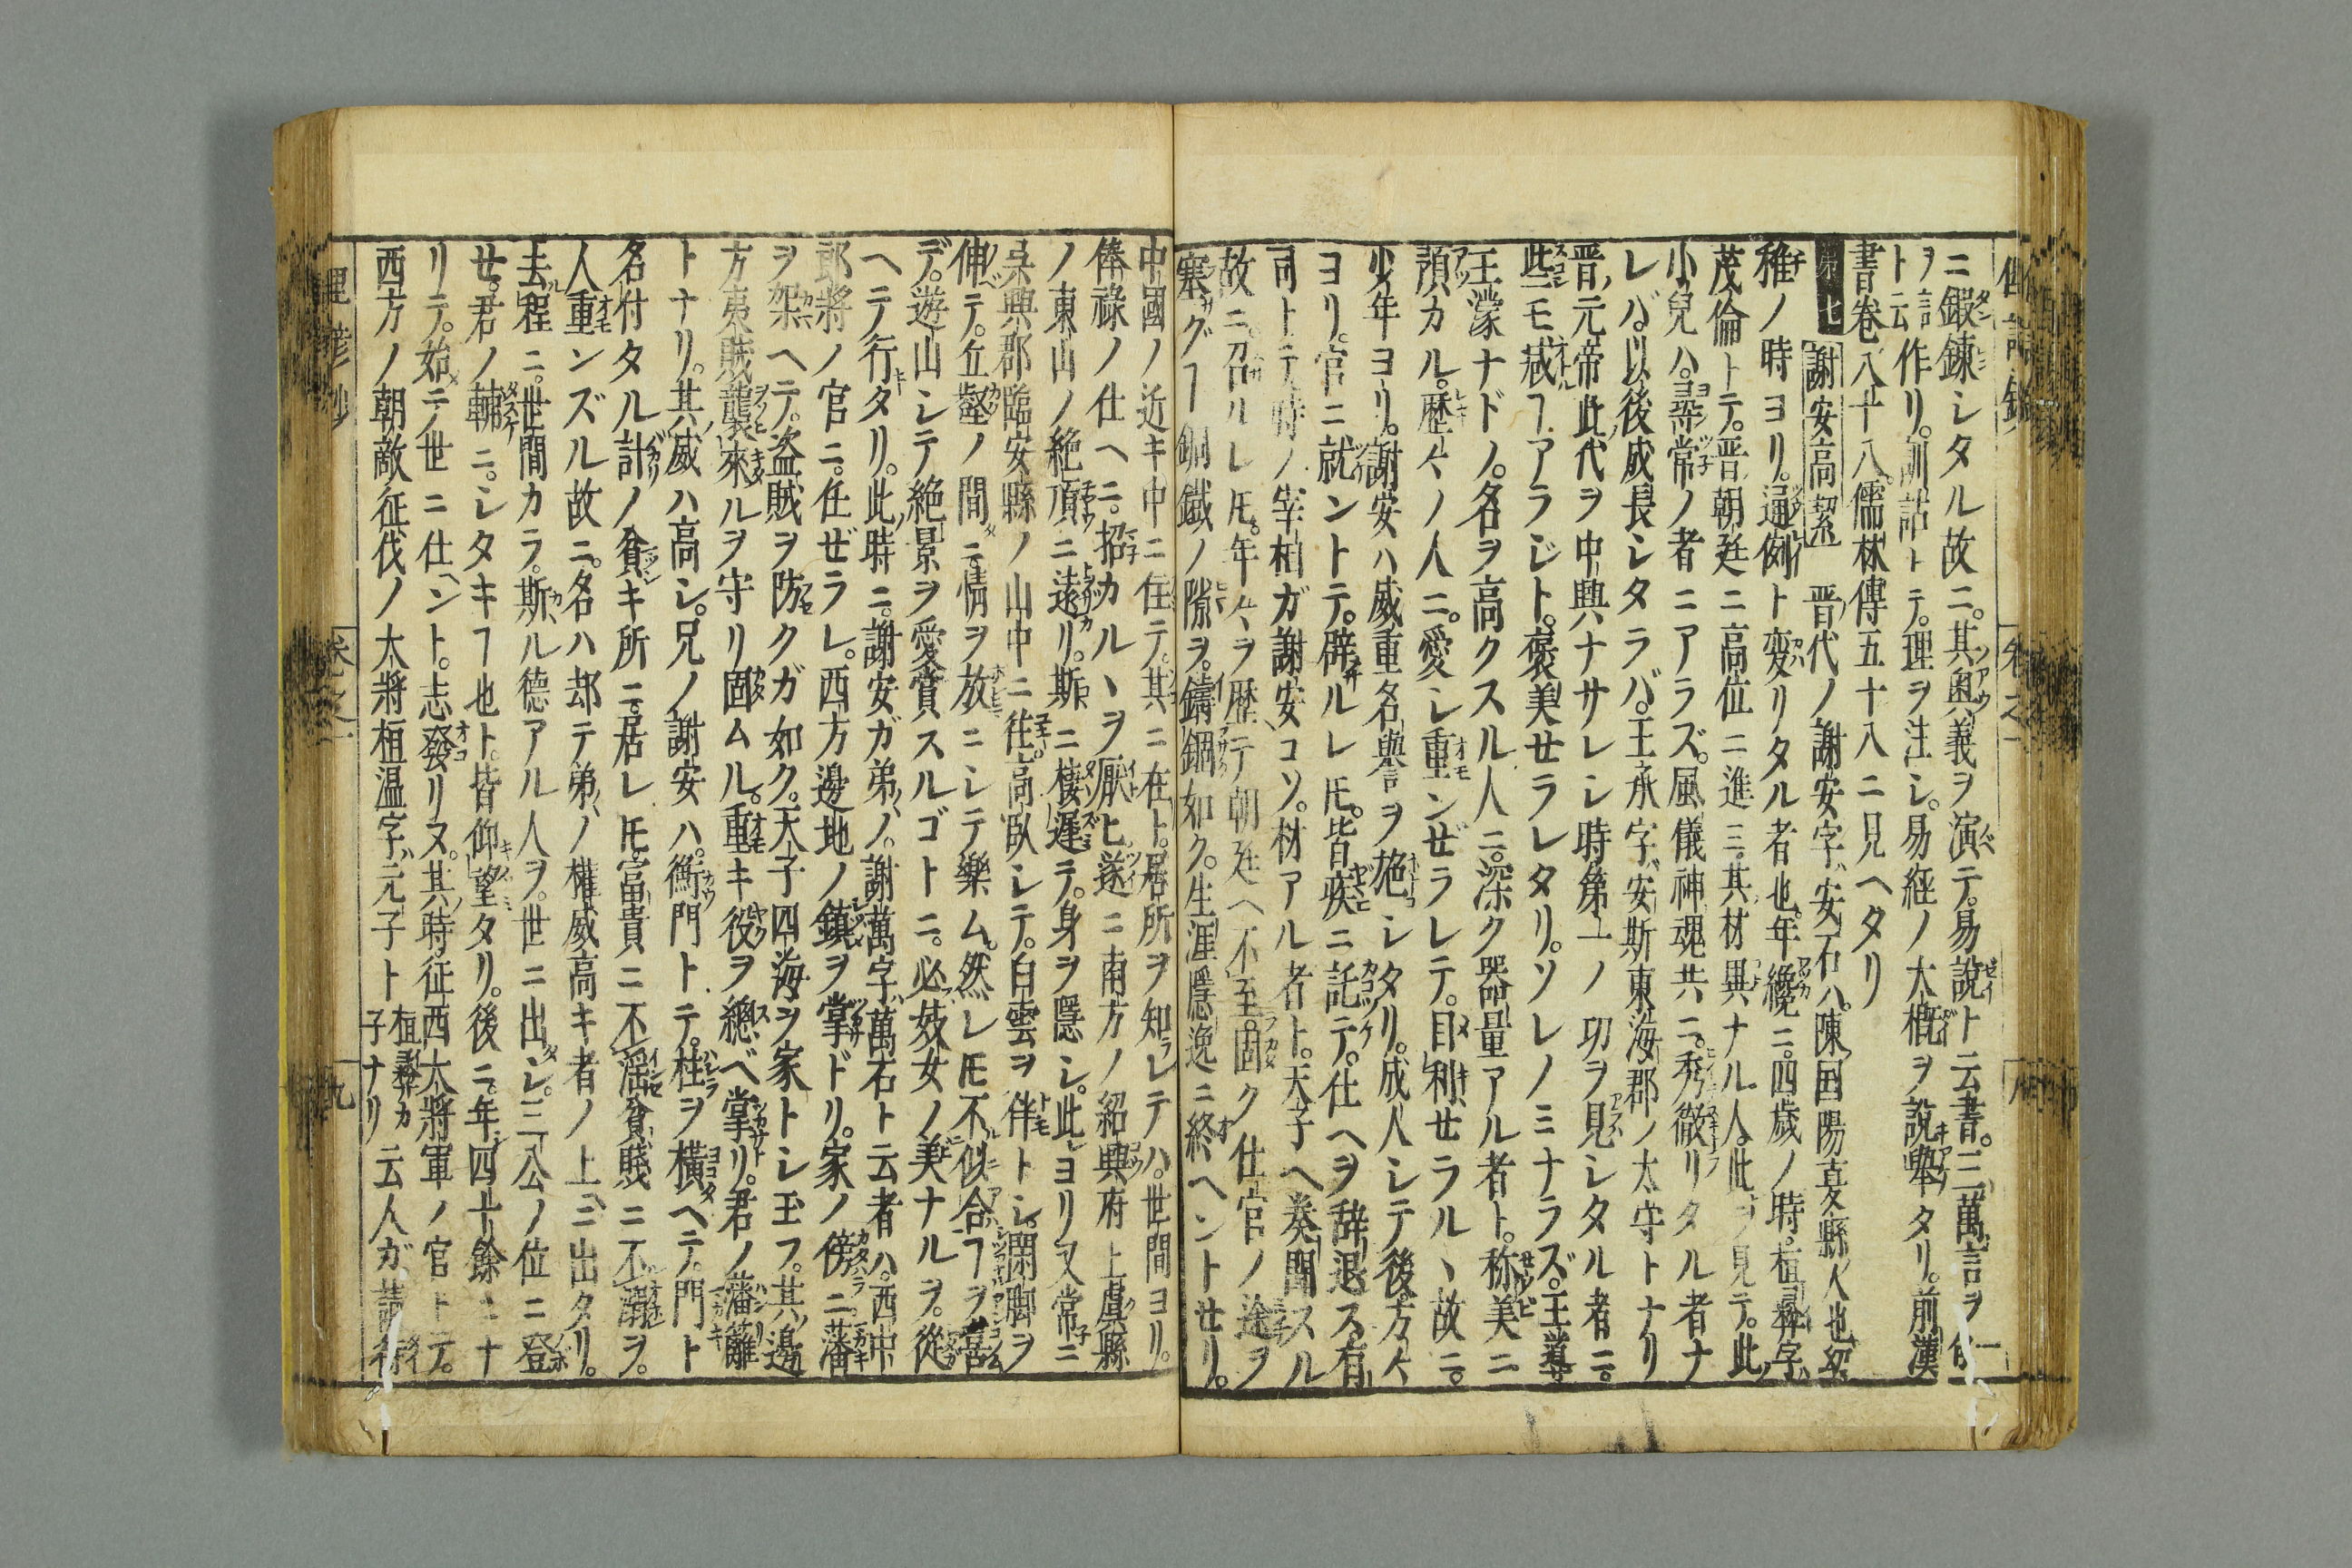 ニ鍜錬シタル故ニ。其奥義ヲ演テ。易說ト云書。三萬言ヲ
ト云作リ。訓詁トテ。理ヲ注シ。易経ノ大概ヲ說舉タリ。前漢
書卷八十八。儒林傳五十八ニ見ヘタリ
第七 謝安高絜 晋代ノ謝安字安石ハ。陳国陽夏縣人也
稚ノ時ヨリ。通例ト変リタル者也。年纔ニ。四歳ノ時。桓彜字
茂倫トテ。晋朝廷ニ高位ニ進ミ。其材異ナル人。此ヲ見テ。此
小兒ハ。尋常ノ者ニアラズ。風儀神魂共ニ。秀徹リタル者ナ
レバ。以後成長シタラバ。王承字安斯東海郡ノ太守トナリ
晋ノ元帝此代ヲ中興ナサレシ時第一ノ功ヲ見シタル者ニ。
些モ减ヿアラジト。褒美セラレタリ。ソレノミナラズ。王導。
王濛ナドノ。名ヲ高クスル人ニ。深ク器量アル者ト。称美ニ
預カル。歴々ノ人ニ。愛シ重ンゼラレテ。目利セラルヽ故ニ。
少年ヨリ。謝安ハ威重名譽ヲ施シタリ。成人シテ後。方々
ヨリ。官ニ就ントテ。辟ルレ𪜈。皆疾ニ託テ。仕ヘヲ辞退ス。有
司トテ時ノ宰相ガ謝安コソ。材アル者ト。天子ヘ奏聞スル
故ニ。召ルレ𪜈。年々ヲ歴テ朝廷ヘ不至。固ク仕官ノ途ヲ
塞グヿ銅鐵ノ隙ヲ。鑄錮如ク。生涯隱逸ニ終ヘントセリ。
中國ノ近キ中ニ住テ。其ニ在ト。居所ヲ知ラレテハ。世間ヨリ。
俸祿ノ仕ヘニ。招カルヽヲ厭ヒ。遂ニ南方ノ紹興府上虞縣
ノ東山ノ絶頂ニ遠リ。斯ニ棲遲テ。身ヲ隱シ。此ヨリ又常ニ
呉興郡臨安縣ノ山中ニ徃。高臥シテ。白雲ヲ伴トシ。閑脚ヲ
伸テ。丘壑ノ間ニ。情ヲ放ニシテ樂ム。然レ𪜈不似合ヿヲ
デ。遊山シテ絶景ヲ愛賞スルゴトニ。必妓女ノ美ナルヲ。從
ヘテ行タリ。此時ニ。謝安ガ弟ノ。謝萬字萬石ト云者ハ。西中
郎將ノ官ニ。任ゼラレ。西方邊地ノ鎮ヲ掌ドリ。家ノ傍ニ藩
ヲ架ヘテ。盗賊ヲ防クガ如ク。天子四海ヲ家トシ玉フ。其邊
方夷賊襲來ルヲ守リ固ムル。重キ役ヲ總ベ掌リ。君ノ藩籬
トナリ。其威ハ高シ。兄ノ謝安ハ。衡門トテ。柱ヲ橫ヘテ。門ト
名付タル計ノ貧キ所ニ。居レ𪜈。富貴ニ不淫貧賤ニ不溺ヲ。
人重ンズル故ニ。名ハ却テ弟ノ權威高キ者ノ上ニ出タリ。
去程ニ。世間カラ。斯ル德アル人ヲ。世ニ出シ。三公ノ位ニ登
セ。君ノ輔ニ。シタキヿ也ト。皆仰望タリ。後ニ。年四十餘ニナ
リテ。始テ世ニ仕ヘント。志發リヌ。其時征西大將軍ノ官トテ。
西方ノ朝敵征伐ノ大將桓温字元子ト桓彜カ子ナリ云人ガ。請待